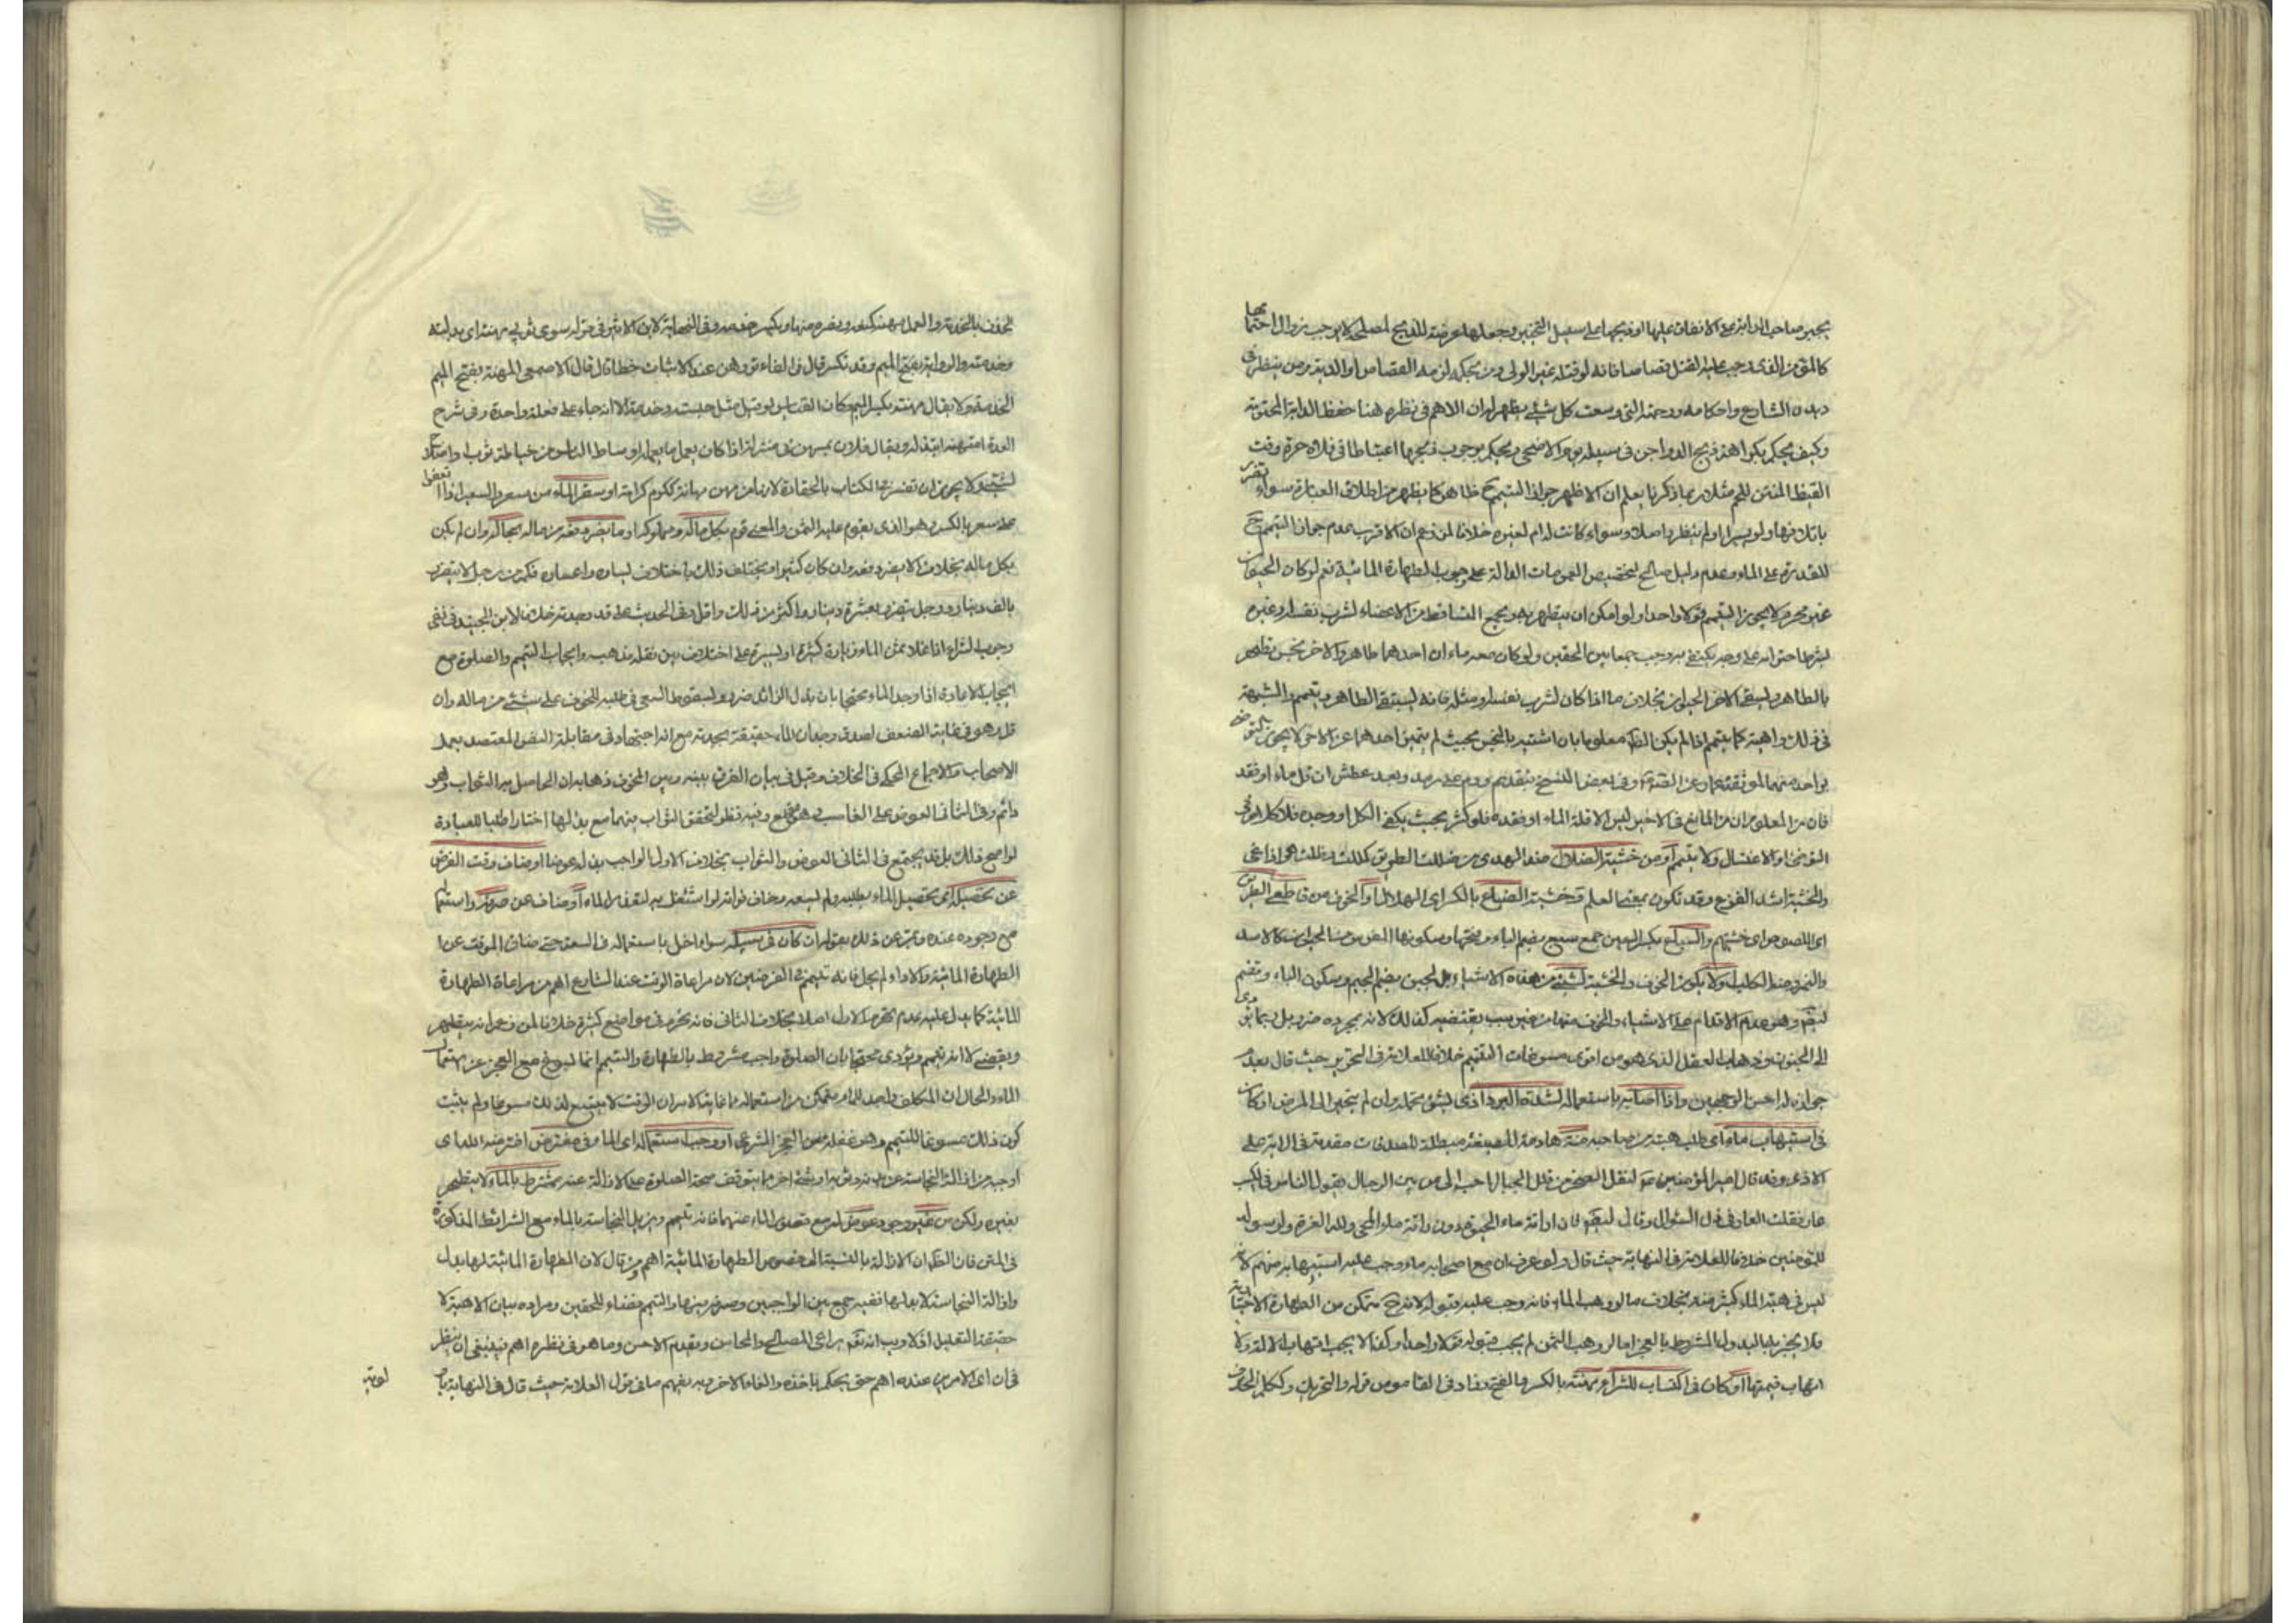 يجبر صاحب الدابة على الانفاق عليها او ذبحها على سبيل التخيير وجعلها عرضة للذبح لمصلحة لا يوجب زوال احترامها
كالمؤمن الذي وجب عليه القتل قصاصا فانه لو قتله غير الولي ومن بحكمه لزمه القصاص او الدية ومن ينظر في
ديدن الشارع واحكامه ورحمته التي وسعت كل شئ يظهر له ان الاهم في نظره هنا حفظ الدابة المحترمة
وكيف يحكم بكراهة ذبح الدواجن في سبيله يوم الاضحى ويحكم بوجوب ذبحها اعتباطا في فلاة حرة وقت
القيظ المنتن للحم مثلا ومما ذكرنا يعلم ان الاظهر جواز التيمم ح ظاهرا كما يظهر من اطلاق العبارة سواء تضرر
باتلافها ولو يسيرا او لم يتضرر اصلا وسواء كانت له ام لغيره خلافا لمن زعم ان الاقرب عدم جواز التيمم ح
للقدرة على الماء وعدم دليل صالح لتخصيص العمومات الدالة على وجوب الطهارة المائية نعم لو كان الحيوان
غير محترم لا يجوز التيمم قولا واحدا ولو امكن ان يتطهر به ويجمع المتساقط من الاعضاء لشرب نفسه او غيره
بشرط احترامه على وجه يكتفي به وجب جمعا بين الحقين ولو كان معه ماءان احدهما طاهر والاخر نجس يتطهر
بالطاهر ويسقي الاخر الحيوان بخلاف ما اذا كان لشرب نفسه او مثله فانه يستبقي الطاهر ويتيمم والشبهة
في ذلك واهية كما يتيمم اذا لم يكن الطاهر معلوما بان اشتبه بالنجس بحيث لم يتميز احدهما عن الاخر لا يجوز التوضي
بواحد منهما لموثقة عمار عن الصادق وفي بعض النسخ بتقديم ورمد على رمد وبعد عطش ان قل ماء او فقد
فان من المعلوم ان المانع في الاخير ليس الا قلة الماء او فقده فلو كثر بحيث يكفي الكل او وجد فلا كلام في
التوضي او الاغتسال ولا يتيمم او من خشية الضلال ضد الهدى من ضللت الطريق كمللت وظللت هو اذا غمي
والخشية اشد الفزع وقد تكون بمعنى العلم وخشية الضياع بالكسر اي الهلاك او الخوف من قاطعي الطريق
اي اللصوص اي خشيتهم والسباع بكسر السين جمع سبع بضم الباء وفتحها وسكونها المفترس من الحيوان كالاسد
والنمر ومنه الكلب ولا يكون الخوف والخشية لشئ من هذه الاشياء بل لجبن بضم الجيم وسكون الباء وبضم
وهو عدم الاقدام على الاشياء والخوف منها من غير سبب يقتضيه كذلك لانه بمجرده ضرر بل ربما يؤدي
الى الجنون وذهاب العقل الذي هو من اقوى مسوغات التيمم خلافا للعلامة في التحرير حيث قال بعدم
جوازه له احسن الوجهين واذا اصابه باستعماله لشدة البرد اذى يشق تحمله وان لم ينجر الى المرض او كان
في استيهاب ماء اي طلب هبته من صاحبه منة هادمة للصنيعة مبطلة للصدقات مقدمة في الاية على
الاذى وقد قال امير المؤمنين ع لنقل الصخر من قلل الجبال احب الي من منن الرجال يقول الناس في الكسب
عار فقلت العار في ذل السؤال وقال فان اراقة ماء الحيوة دون اراقة ماء المحيا ولله العزة ولرسوله
للمؤمنين خلافا للعلامة في النهاية حيث قال ولو عرف ان مع اصحابه ماء وجب عليه استيهابه منهم لانه
ليس في هبة الماء كثير منة بخلاف ما لو وهب الماء فانه وجب عليه قبوله لانه ح متمكن من الطهارة الاختيارية
فلا يجزيه البدل المشروط بالعجز اما لو وهب الثمن لم يجب قبوله قولا واحدا وكذا لا يجب اتهاب الالة ولا
اتهاب قيمتها او كان في اكتساب للشراء مهنة بالكسر والفتح وزاد في القاموس قوله والتحريك وككلمة الحذق
الحذق بالخدمة والعمل مهنه كمنعه ونصره مهنا ويكسر خدمه وفي النهاية لابن الاثير في قوله سوى ثوبي مهنته اي بذلته
وخدمته والرواية بفتح الميم وقد تكسر قال في الفائق وهو عند الاثبات خطأ قال قال الاصمعي المهنة بفتح الميم
الخدمة ولا يقال مهنة بكسر الميم كان القياس لو قيل مثل جلسة وخدمة الا انه جاء على فعلة واحدة وفي شرح
الدرة امتهنه ابتذله ويقال فلان يمهن في منزله اذا كان يعمل ما يعمله اوساط الناس من خياطة ثوب واصلاح
لشئ ولا يجوز ان تفسر في الكتاب بالحقارة لانها من مهن مهانة ككرم كرامة او سعر الماء من سعروا السعر اذا اتفقوا
على سعر بالكسر وهو الذي يقوم عليه الثمن والمعنى قوم بكل ماله ومملوكه او ما يضر فقده من ماله بحاله وان لم يكن
بكل ماله بخلاف ما لا يضره فقده وان كان كثيرا ويختلف ذلك باختلاف البلاد واعصار فكم من رجل لا يتضرر
بالف دينار ورجل يتضرر بعشرة دينار واكثر من ذلك واقل وفي الحديث على قدر جدته خلافا لابن الجنيد في نفي
وجوب الشراء اذا غلا ثمن الماء زيادة كثيرة او يسيرة على اختلاف بين نقلة مذهبه وايجاب التيمم والصلوة مع
ايجاب الاعادة اذا وجد الماء محتجا بان بذل الزائد ضرر ولسقوط السعي في طلبه للخوف على شئ من ماله وان
قل وهو في غاية الضعف لصدق وجدان الماء حقيقة بجدته مع انه اجتهاد في مقابلة النص المعتضد بعمل
الاصحاب والاجماع المحكي في الخلاف وقيل في بيان الفرق بينه وبين الخوف ذهابه ان الحاصل به الثواب وهو
دائم وفي الثاني العوض على الغاصب وهو منقطع وفيه نظر لتحقق الثواب فيهما مع بذلها اختيارا طلبا للعبادة
لواضح فذلك بل قد يجتمع في الثاني العوض والثواب بخلاف الاول الواجب بذله عوضا او ضاق وقت الفرض
عن تحصيله اي تحصيل الماء بطلبه ولم يسعه وخاف فواته لو اشتغل به لتفقد الماء او ضاق عن صرفه واستعماله
مع وجوده عنده ونبه عن ذلك بقوله ان كان في سبيله سواء اخل باستعماله في السعة حتى ضاق الوقت عن
الطهارة المائية والاداء ام لم يخل فانه تيمم في الفرضين لان مراعاة الوقت عند الشارع اهم من مراعاة الطهارة
المائية كما يدل عليه عدم تحريم الاول اصلا بخلاف الثاني فانه تحريم في مواضع كثيرة خلافا لمن زعم انه يتطهر
ويقضي لا انه يتيمم ويؤدي محتجا بان الصلوة واجب مشروط بالطهارة والتيمم انما يسوغ مع العجز عن استعمال
الماء والحال ان المكلف واجد للماء متمكن من استعماله غاية الامر ان الوقت لا يتسع لذلك مسوغا ولم يثبت
كون ذلك مسوغا للتيمم وهو غفلة من العجز الشرعي او وجب استعماله اي الماء في مفترض افترضه الله اي
اوجبه من ازالة النجاسة عن بدنه وثوبه او شئ اخر مما يتوقف صحة الصلوة على الازالة عنه مشترط بالماء لا يتطهر
بغيره ولكن من غير وجود عوض له مع قصور الماء عنهما فانه تيمم ويزيل النجاسة بالماء مع الشرائط المذكورة
في المتن فان الظاهر ان الازالة بالنسبة الى خصوص الطهارة المائية اهم ومن قال لان الطهارة المائية لها بدل
وازالة النجاسة لا بدل لها ففيه جمع بين الواجبين وصرفه بينها والتيمم قضاء للحقين ومراده بيان الاهمية لا
حقيقة التعليل اذ لا ريب انه تعم يراعي المصالح والمحاسن ويقدم الاحسن وما هو في نظره اهم فينبغي ان ينظر
في ان اي الامرين عنده اهم حتى يحكم باخذه والغاء الاخر وبه يفهم ما في قول العلامة حيث قال في النهاية